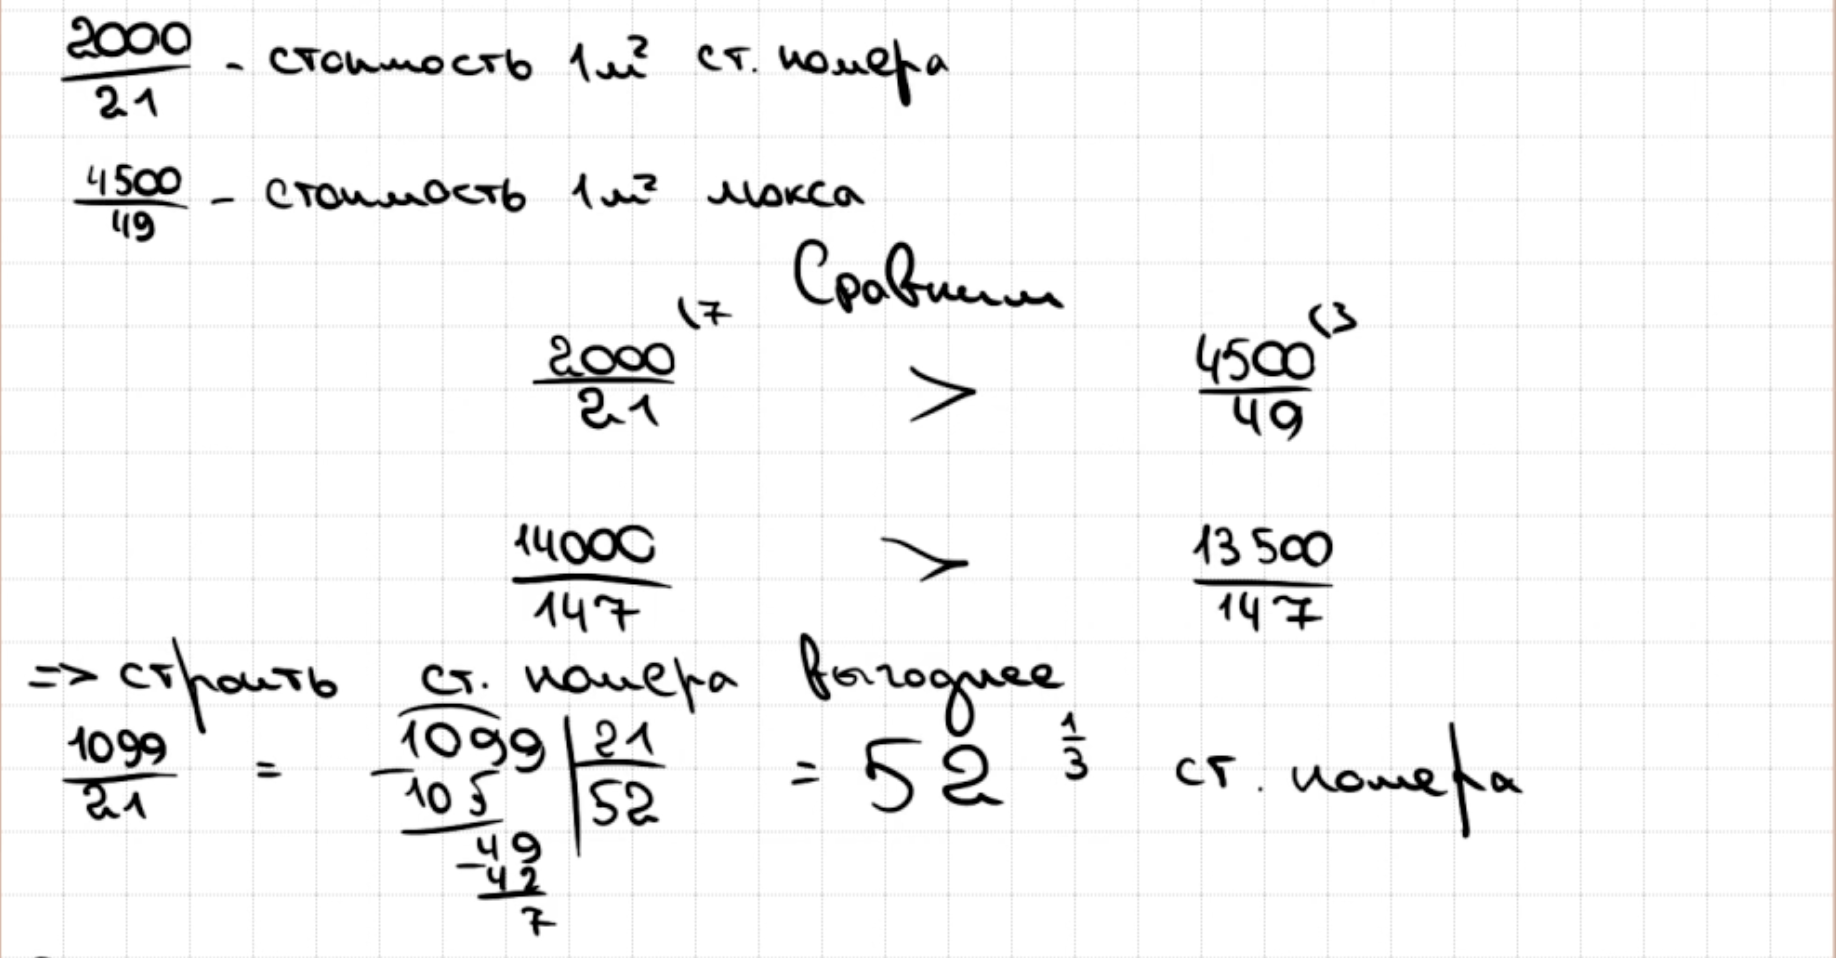 2000/21 - стоимость 1 м² ст. номера
4500/49 - стоимость 1 м² люкса
Сравним
2000/21 (7 > 4500/49 (3
14000/147 > 13500/147
=> строить ст. номера выгоднее
1099/21 = 1099 | 21 = 52 1/3 ст. номера
- 105 | 52
49
- 42
7